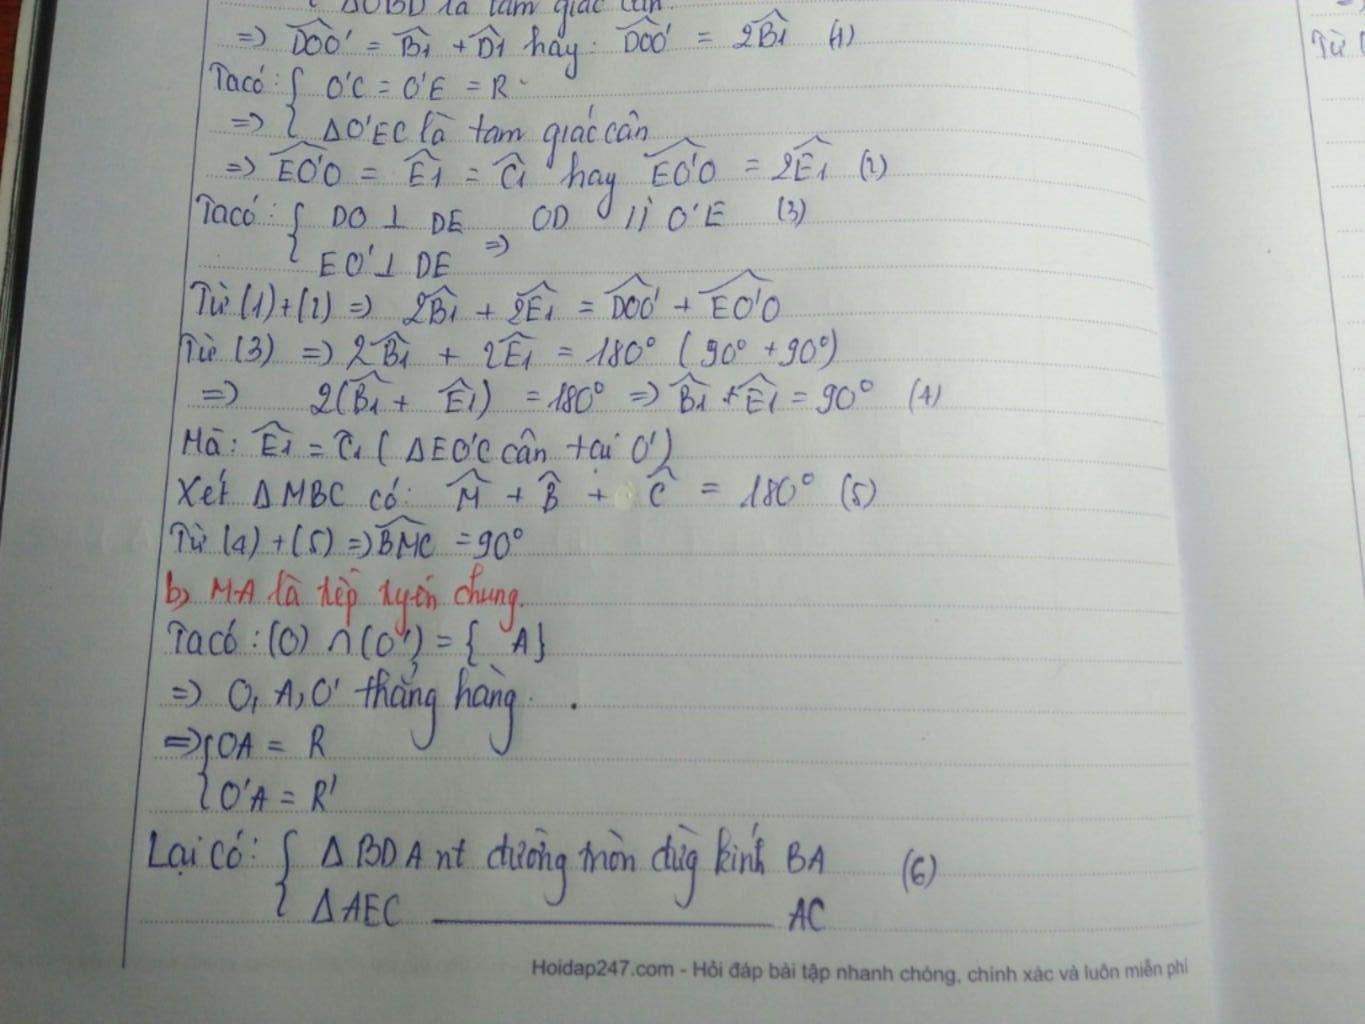 ΔOBD là tam giác cân.
=> DOO' = B1 + D1 hay DOO' = 2B1 (1)
Từ
Ta có: { O'C = O'E = R
=> { ΔO'EC là tam giác cân
=> EO'O = E1 = C1 hay EO'O = 2E1 (2)
Ta có: { DO ⊥ DE OD // O'E (3)
EO' ⊥ DE =>
Từ (1)+(2) => 2B1 + 2E1 = DOO' + EO'O
Từ (3) => 2B1 + 2E1 = 180° (90° + 90°)
=> 2(B1 + E1) = 180° => B1 + E1 = 90° (4)
Mà: E1 = C1 (ΔEO'C cân tại O')
Xét ΔMBC có: M + B + C = 180° (5)
Từ (4) + (5) => BMC = 90°
b, MA là tiếp tuyến chung.
Ta có: (O) ∩ (O') = { A}
=> O, A, O' thẳng hàng.
=> { OA = R
{ O'A = R'
Lại có: { Δ BDA nt đường tròn đường kính BA (6)
{ Δ AEC ———————— AC
Hoidap247.com - Hỏi đáp bài tập nhanh chóng, chính xác và luôn miễn phí